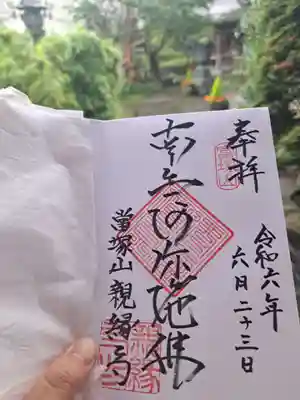 奉拝
令和六年
六月二十三日
南無阿弥陀佛
當塚山親縁寺